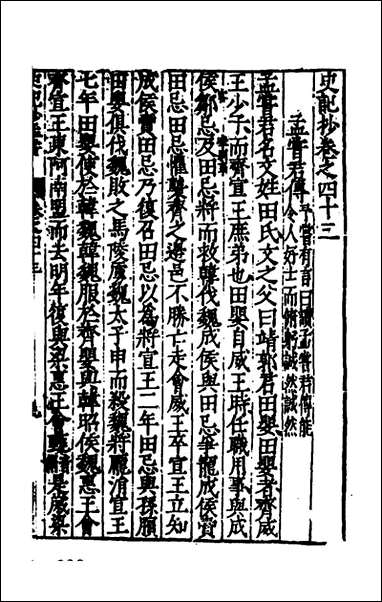 史記抄卷之四十三
孟嘗君傳
予嘗有言曰讀孟嘗君傳能
令人好士而俯躬誠然誠然
孟嘗君名文姓田氏文之父曰靖郭君田嬰田嬰者齊威
王少子而齊宣王庶弟也田嬰自威王時任職用事與成
侯鄒忌及田忌將而救韓伐魏成侯與田忌爭寵成侯賣
田忌田忌懼襲齊之邊邑不勝亡走會威王卒宣王立知
成侯賣田忌乃復召田忌以為將宣王二年田忌與孫臏
田嬰俱伐魏敗之馬陵虜魏太子申而殺魏將龐涓宣王
七年田嬰使於韓魏韓魏服於齊嬰與韓昭侯魏惠王會
齊宣王東阿南盟而去明年復與梁惠王會甄是歲梁